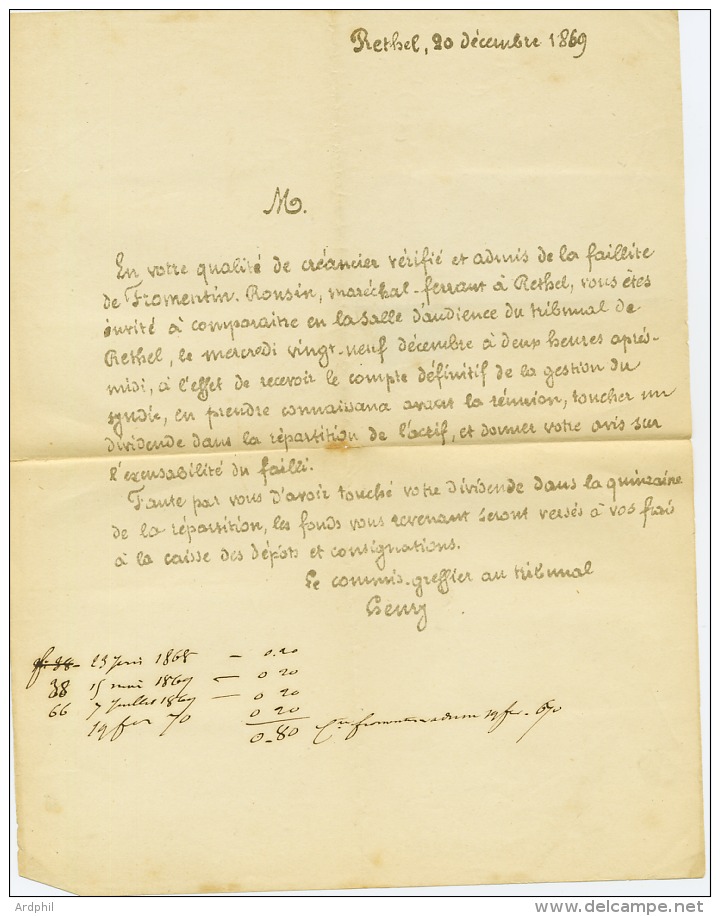 Rethel, 20 décembre 1869
M.
En votre qualité de créancier vérifié et admis de la faillite
de Fromentin-Ronsin, maréchal-ferrant à Rethel, vous êtes
invité à comparaître en la salle d'audience du tribunal de
Rethel, le mercredi vingt-neuf décembre à deux heures après-
midi, à l'effet de recevoir le compte définitif de la gestion du
syndic, en prendre connaissance avant la réunion, toucher un
dividende dans la répartition de l'actif, et donner votre avis sur
l'excusabilité du failli.
Faute par vous d'avoir touché votre dividende dans la quinzaine
de la répartition, les fonds vous revenant seront versés à vos frais
à la caisse des dépôts et consignations.
Le commis-greffier au tribunal
Henry
1868 — 0.20
38 15 mai 1869 — 0 20
66 7 Juillet 1869 — 0 20
19 fer 70 0 20
0-80
Ardphil
www.delcampe.net